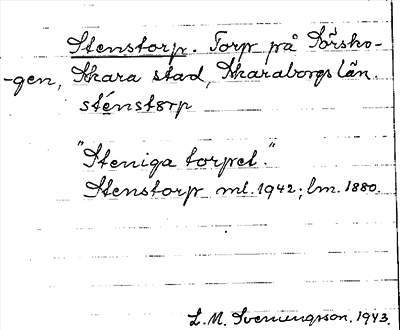 Stenstorp. Torp på Försko-
-gen, Skara stad, Skaraborgs län.
sténstørp
"Steniga torpet."
Stenstorp ml. 1942; lm. 1880.
L. M. Svenungsson. 1943.